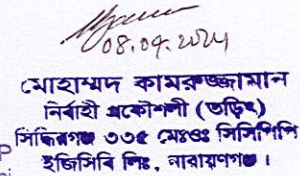 08.09.2024
মোহাম্মদ কামরুজ্জামান
নির্বাহী প্রকৌশলী (তড়িৎ)
সিদ্ধিরগঞ্জ ৩৩৫ মেঃওঃ সিসিপিপি
ইজিসিবি লিঃ, নারায়ণগঞ্জ।